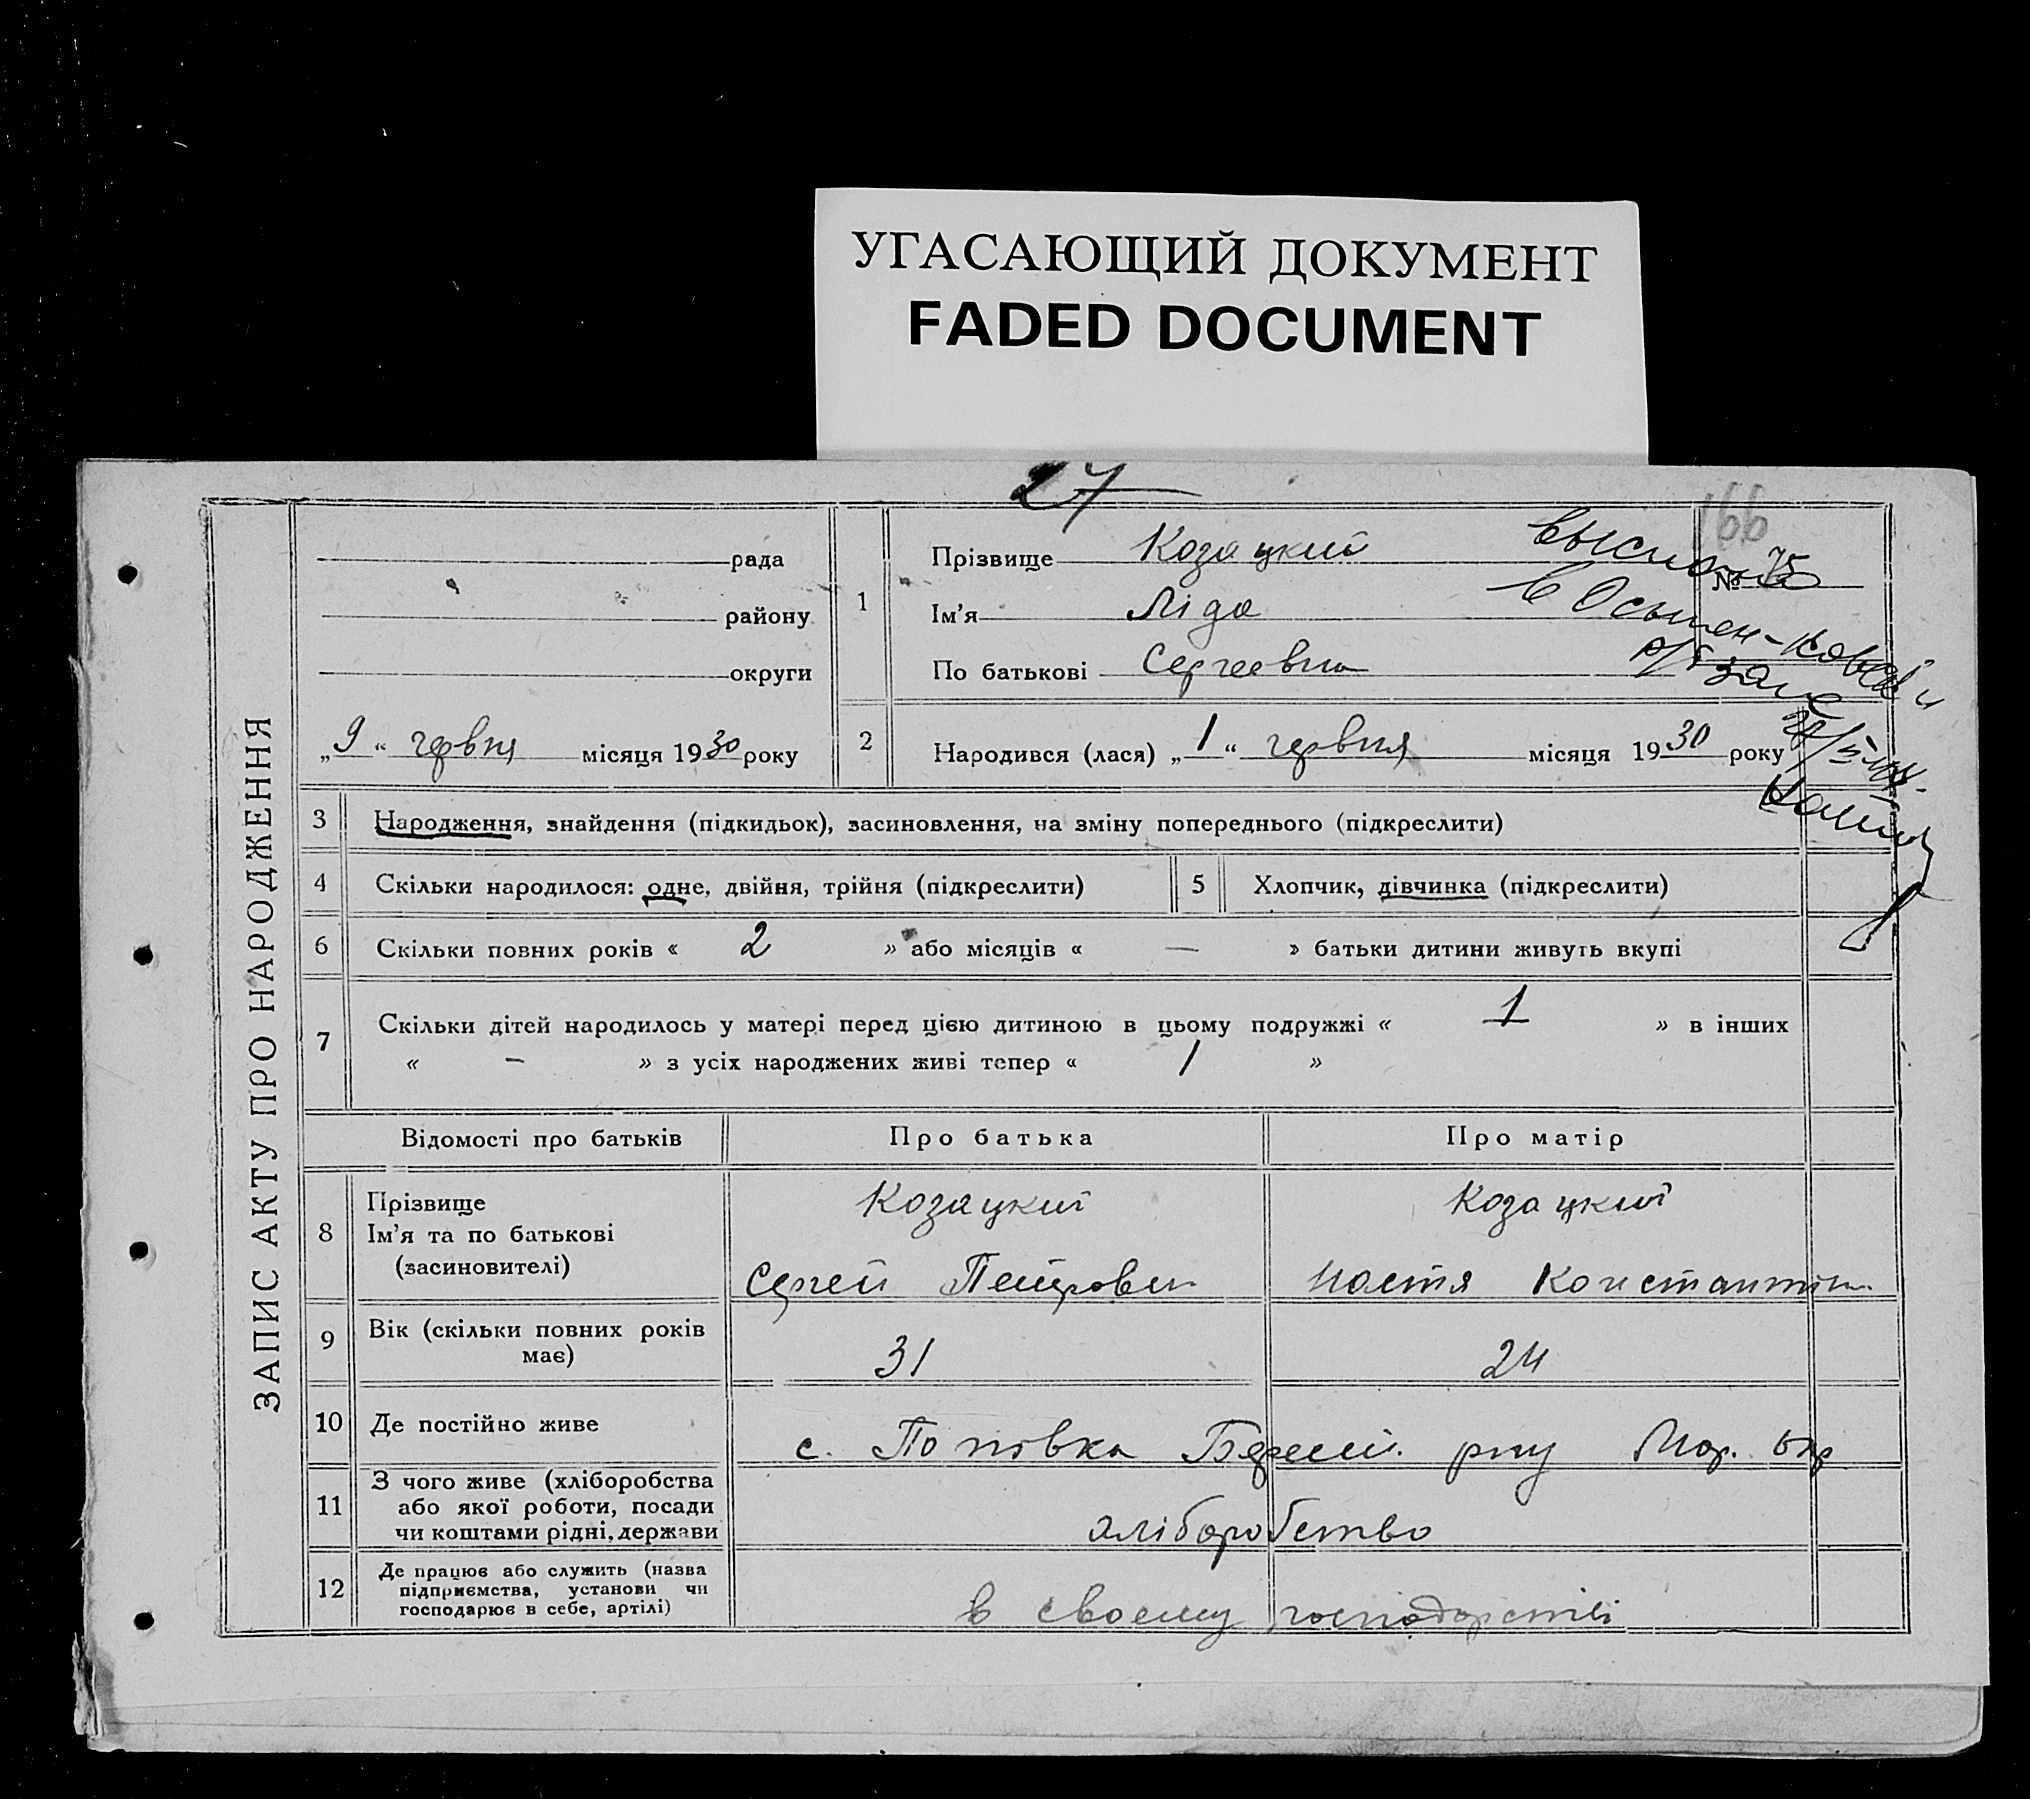 УГАСАЮЩИЙ ДОКУМЕНТ
FADED DOCUMENT
27
166
ЗАПИС АКТУ ПРО НАРОДЖЕННЯ
рада
району
округи
„9“ червня місяця 1930 року
1
Прізвище Козацкий
№ 75
Ім'я Ліда
По батькові Сергеевна
в
2
Народився (лася) „1“ червня місяця 1930 року
3 Народження, знайдення (підкидьок), засиновлення, на зміну попереднього (підкреслити)
4 Скільки народилося: одне, двійня, трійня (підкреслити)
5 Хлопчик, дівчинка (підкреслити)
6 Скільки повних років « 2 » або місяців « — » батьки дитини живуть вкупі
7 Скільки дітей народилось у матері перед цією дитиною в цьому подружжі « 1 » в інших
« – » з усіх народжених живі тепер « 1 »
Відомості про батьків Про батька Про матір
8 Прізвище Козацкий Козацкий
Ім'я та по батькові
(засиновителі) Сергей Петрович Настя Константин.
9 Вік (скільки повних років
має) 31 24
10 Де постійно живе с. Попівка р-ну Мар. окр
11 З чого живе (хліборобства
або якої роботи, посади
чи коштами рідні, держави хліборобство
12 Де працює або служить (назва
підприємства, установи чи
господарює в себе, артілі) в своему господарстві